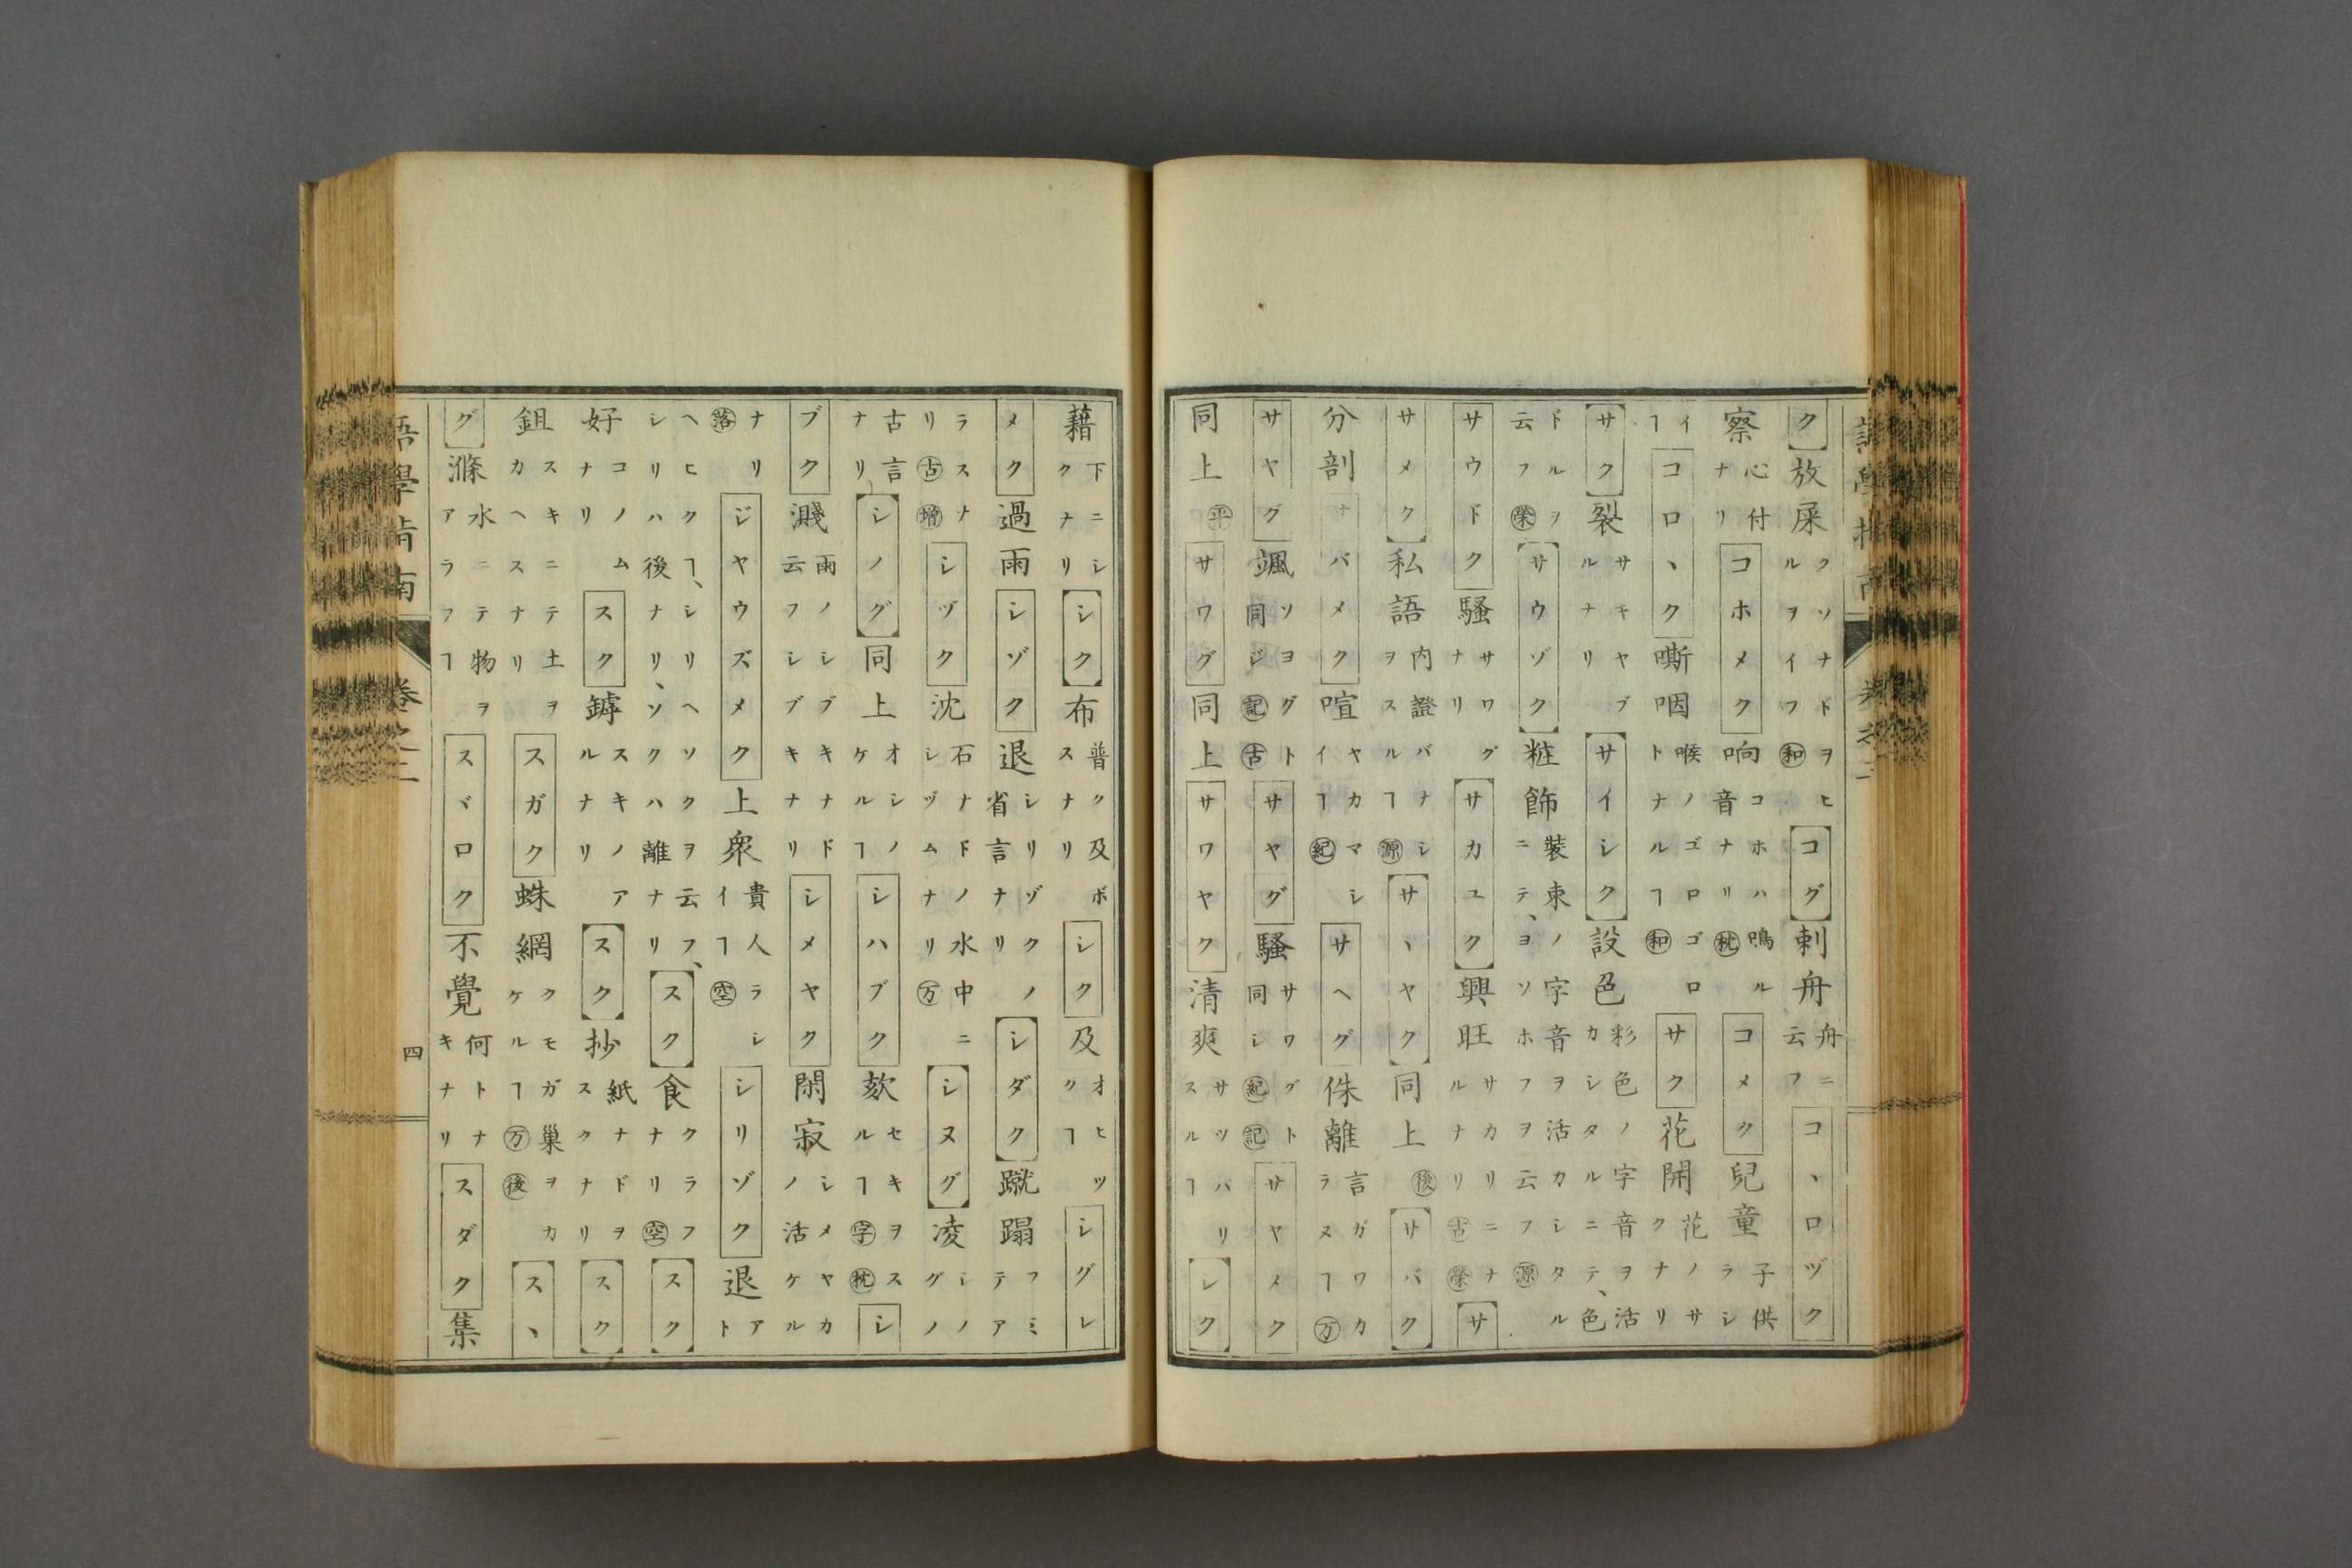 ク放屎クソナドヲヒルヲイフ和コグ刺舟舟ニ云フコヽロヅク
察心付ナリコホメク响コホハ鳴ル音ナリ枕コメク兒童子供ラシ
イヿコロヽク嘶咽喉ノゴロゴロトナルヿ和サク花開花ノサクナリ
サク裂サキヤブルナリサイシク設色彩色ノ字音ヲ活カシタルニテ、色
ドルヲ云フ榮サウゾク粧飾裝束ノ字音ヲ活カシタルニテ、ヨソホフヲ云フ源
サウドク騷サワグナリサカユク興旺サカリニナルナリ古榮サ
サメク私語内證バナシヲスルヿ源サヽヤク同上後サバク
分剖ナバメク喧ヤカマシイヿ紀サヘグ侏離言ガワカラヌヿ万
サヤグ颯ソヨグト同ジ記古サヤグ騷サワグト同シ紀記サヤメク
同上平サワグ同上サワヤク清爽サツパリスルヿシク
藉下ニシクナリシク布普ク及ボスナリシク及オヒツクヿシグレ
メク過雨シゾク退シリゾクノ省言ナリシダク蹴蹋フミテア
ラスナリ古增シヅク沈石ナドノ水中ニシヅムナリ万シヌグ凌シノグノ
古言ナリシノグ同上オシノケルヿシハブク欬セキヲスルヿ字枕シ
ブク濺雨ノシブキナド云フシブキナリシメヤク閑寂シメヤカノ活ケル
ナリ落ジヤウズメク上衆貴人ラシイヿ空シリゾク退アト
ヘヒクヿ、シリヘソクヲ云フ、シリハ後ナリ、ソクハ離ナリスク食クラフナリ空スク
好コノムナリスク罅スキノアルナリスク抄紙ナドヲスクナリスク
鉏スキニテ土ヲカヘスナリスガク蛛網クモガ巢ヲカケルヿ万後スヽ
グ滌水ニテ物ヲアラフヿスヾロク不覺何トナキナリスダク集
語學指南
卷之二
四